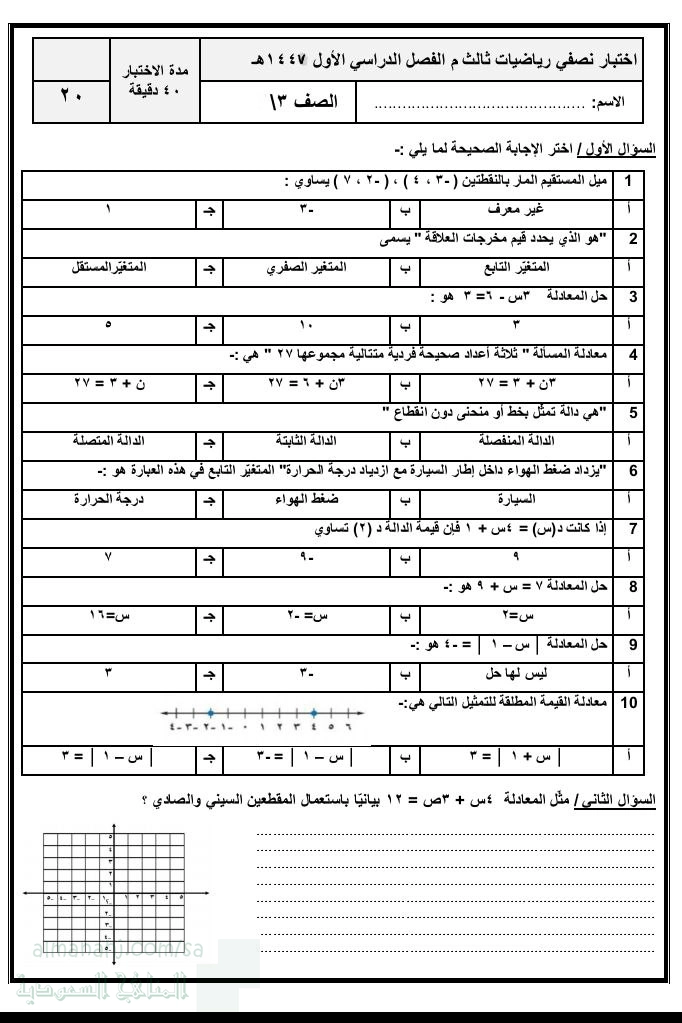 اختبار نصفي رياضيات ثالث م الفصل الدراسي الأول ١٤٤٧هـ
مدة الاختبار
٤٠ دقيقة
الاسم: ............................................
الصف ٣\
٢٠
السؤال الأول / اختر الإجابة الصحيحة لما يلي :-
1 ميل المستقيم المار بالنقطتين ( -٣ ، ٤ ) ، ( -٢ ، ٧ ) يساوي :
أ غير معرف ب -٣ جـ ١
2 "هو الذي يحدد قيم مخرجات العلاقة " يسمى
أ المتغيّر التابع ب المتغير الصفري جـ المتغيّرالمستقل
3 حل المعادلة ٣س - ٦ = ٣ هو :
أ ٣ ب ١٠ جـ ٥
4 معادلة المسألة " ثلاثة أعداد صحيحة فردية متتالية مجموعها ٢٧ " هي :-
أ ٣ن + ٣ = ٢٧ ب ٣ن + ٦ = ٢٧ جـ ن + ٣ = ٢٧
5 "هي دالة تمثّل بخط أو منحنى دون انقطاع "
أ الدالة المنفصلة ب الدالة الثابتة جـ الدالة المتصلة
6 "يزداد ضغط الهواء داخل إطار السيارة مع ازدياد درجة الحرارة" المتغيّر التابع في هذه العبارة هو :-
أ السيارة ب ضغط الهواء جـ درجة الحرارة
7 إذا كانت د(س) = ٤س + ١ فإن قيمة الدالة د (٢) تساوي
أ ٩ ب -٩ جـ ٧
8 حل المعادلة ٧ = س + ٩ هو :-
أ س=٢ ب س= -٢ جـ س=١٦
9 حل المعادلة | س – ١ | = -٤ هو :-
أ ليس لها حل ب -٣ جـ ٣
10 معادلة القيمة المطلقة للتمثيل التالي هي:-
-٤ -٣ -٢ -١ ٠ ١ ٢ ٣ ٤ ٥ ٦
أ | س + ١ | = ٣ ب | س – ١ | = -٣ جـ | س – ١ | = ٣
السؤال الثاني / مثّل المعادلة ٤س + ٣ص = ١٢ بيانيًا باستعمال المقطعين السيني والصادي ؟
٥
٤
٣
٢
١
-٥ -٤ -٣ -٢ -١ ١ ٢ ٣ ٤ ٥
-٢
-٣
-٤
-٥
almanahj.com/sa
المناهج السعودية